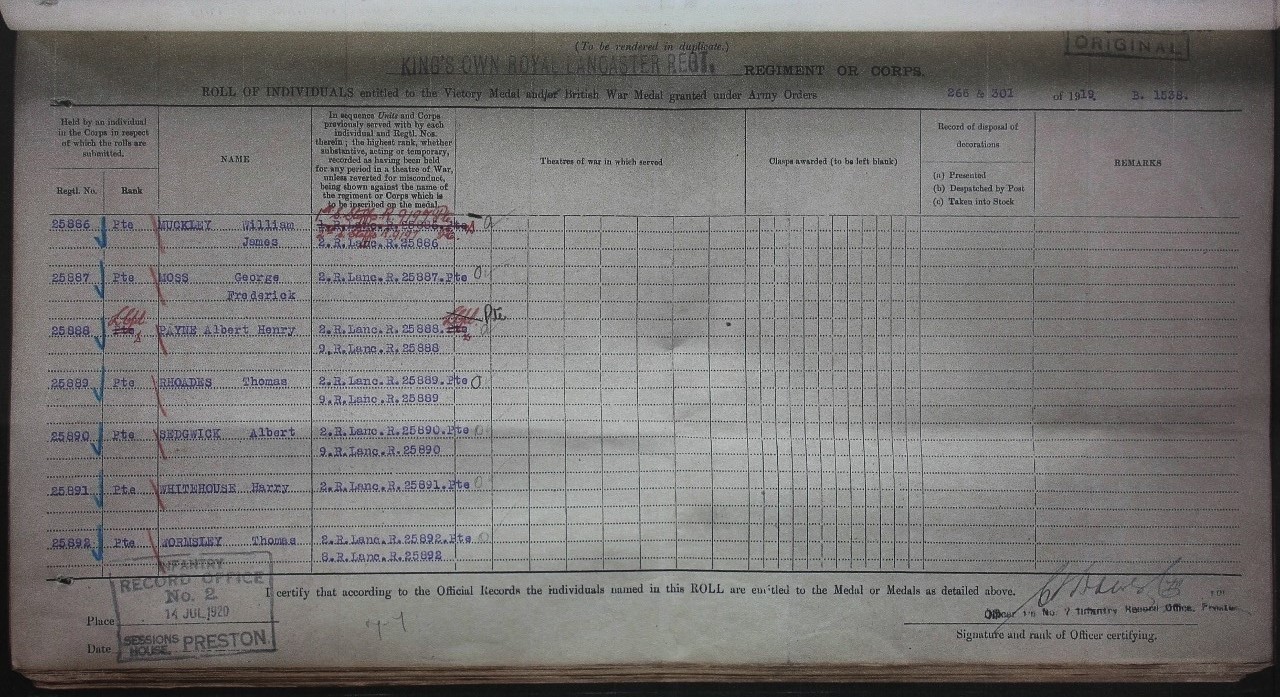 ORIGINAL
(To be rendered in duplicate.)
KING'S OWN ROYAL LANCASTER REGT. REGIMENT OR CORPS.
ROLL OF INDIVIDUALS entitled to the Victory Medal and/or British War Medal granted under Army Orders 266 & 301 of 1919 B. 1538.
Held by an individual
in the Corps in respect
of which the rolls are
submitted.
Regtl. No.
Rank
NAME
In sequence Units and Corps
previously served with by each
individual and Regtl. Nos.
therein; the highest rank, whether
substantive, acting or temporary,
recorded as having been held
for any period in a theatre of War,
unless reverted for misconduct,
being shown against the name of
the regiment or Corps which is
to be inscribed on the medal.
Theatres of war in which served
Clasps awarded (to be left blank)
Record of disposal of
decorations
(a) Presented
(b) Despatched by Post
(c) Taken into Stock
REMARKS
25886 Pte MUCKLEY William
James 2.R.Lanc.R.25886
25887 Pte MOSS George 2.R.Lanc.R.25887.Pte
Frederick
25888 LCpl Pte PAYNE Albert Henry 2.R.Lanc.R.25888. LCpl Pte
9.R.Lanc.R.25888
25889 Pte RHOADES Thomas 2.R.Lanc.R.25889.Pte
9.R.Lanc.R.25889
25890 Pte SEDGWICK Albert 2.R.Lanc.R.25890.Pte
9.R.Lanc.R.25890
25891 Pte WHITEHOUSE Harry 2.R.Lanc.R.25891.Pte
25892 Pte WORMSLEY Thomas 2.R.Lanc.R.25892.Pte
8.R.Lanc.R.25892
I certify that according to the Official Records the individuals named in this ROLL are entitled to the Medal or Medals as detailed above.
INFANTRY
RECORD OFFICE
No. 2
14 JUL 1920
SESSIONS
HOUSE, PRESTON
Place
Date
Officer i/c No. 2 Infantry Record Office, Preston
Signature and rank of Officer certifying.